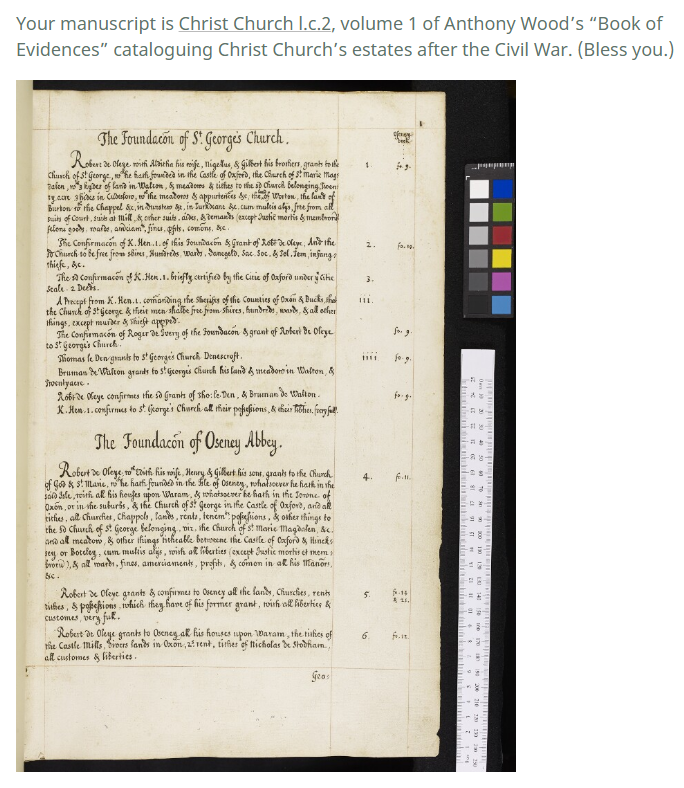 Your manuscript is Christ Church l.c.2, volume 1 of Anthony Wood's “Book of
Evidences” cataloguing Christ Church's estates after the Civil War. (Bless you.)
1
The Foundacõn of St. Georges Church.
Oseney book.
Robert de Oleye with Alditha his wife, Nigellus, & Gilbert his brothers, grants to the 1. fo. 9.
Church of St George, wch he hath founded in the Castle of Oxford, the Church of St Marie Mag
dalen, wth 3 hydes of land in Walton, & meadows & tithes to the sd Church belonging, Twen
ty acre
Burton to the Chappel &c, in &c, cum multis alijs, free from all
suits of Court, suite at Mill, & other suits, aides, & demands (except Justic mortis & membrorũ
felons goods, fines, &c.
The Confirmacõn of K. Hen. 1. of this Foundacõn & Grant of Robt de Oleye, And the 2. fo. 10.
sd Church to be free from Shires, Hundreds, Wards, Danegeld, Sac. Soc, & Tol, Tem, infang:
thiefe, &c.
The sd Confirmacõn of K. Hen. 1. briefly certified by the Citie of Oxford under ye Citie 3.
Seale. 2 Deeds.
A Precept from K. Hen. 1. comanding the Sheriffs of the Counties of Oxõn & Bucks, that iii.
the Church of St George & their men shalbe free from shires, hundreds, wards, & all other
things, except murder & thieft
The Confirmacõn of Roger de Ivery of the Foundacõn, & grant of Robert de Oleye fo. 9.
to St Georges Church.
Thomas le Den grants to St Georges Church Denescroft. iiii fo. 9.
Bruman de Walton grants to St Georges Church his land & meadow in Walton, &
Twentyacre.
Robt de Oleye confirmes the sd Grants of Tho: le Den, & Bruman de Walton. fo. 9.
K. Hen. 1. confirmes to St George's Church all their possessions, & their Tithes, very full.
The Foundacõn of Oseney Abbey.
Robert de Oleye, wth Edith his wife, Henry & Gilbert his sons, grants to the Church 4. fo. 11.
of God & St Marie, wch he hath founded in the Isle of Oseney, whatsoever he hath in the
said Isle, with all his houses upon Waram, & whatsoever he hath in the
Oxõn, or in the suburbs, & the Church of St George in the Castle of Oxford, and all
tithes, all Churches, Chappels, lands, rents, tenemts possessions, & other things to
the sd Church of St George belonging, viz. the Church of St Marie Magdalen, &c.
and all meadows, & other things titheable betweene the Castle of Oxford & Hinck:
sey or Boteley, cum multis alijs, with all liberties (except Justic mortis et mem:
brorũ), & all wards, fines, amerciaments, profits, & cõmon in all his Manors,
&c.
Robert de Oleye grants & confirmes to Oseney all the lands, Churches, rents 5. fo. 14
tithes, & possessions, which they have of his former grant, with all liberties & & 21.
customes, very full.
Robert de Oleye grants to Oseney all his houses upon Waram, the tithes of 6. fo. 12.
the Castle Mills, divers lands in Oxõn, 2s rent, tithes of Nicholas de Stodham,
all customes & liberties.
Geo: